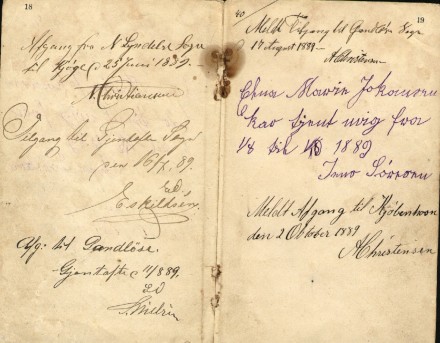 18
Afgang fra N Lyndelse Sogn
til Kjøge, 25 Juni 1889.
A. Christiansen
Tilgang til Gjentofte Sogn
den 16/7. 89.
Eskildsen.
Afg: til Sandløse.
Gjentofte, 11/8 89.
19
40
Meldt Tilgang til Sogn
17 August 1889
A Christensen
Elna Marie Johansen
har tjent mig fra
til 1889
Jens Sørensen
Meldt Afgang til Kjøbenhavn
den 2 Oktober 1889
A Christensen